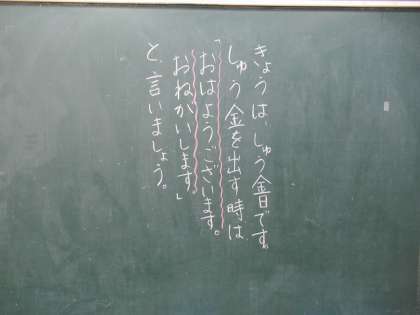 きょうは、しゅう金日です。
しゅう金を出す時は
「おはようございます。
おねがいします。」
と、言いましょう。